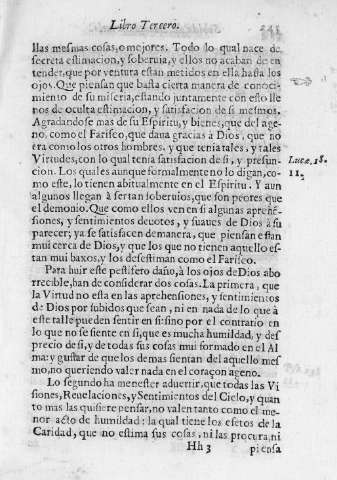 Libro Tercero. 241
llas mesmas cosas, o mejores. Todo lo qual nace de
secreta estimacion, y soberuia, y ellos no acaban de en
tender, que por ventura estan metidos en ella hasta los
ojos. Que piensan que basta cierta manera de conoci-
miento de su miseria, estando juntamente con esto lle
nos de oculta estimacion, y satisfacion de si mesmos.
Agradandose mas de su Espiritu, y bienes, que del age-
no, como el Fariseo, que daua gracias à Dios, que no
era como los otros hombres, y que tenia tales, y tales
Virtudes, con lo qual tenia satisfacion de si, y presun-
cion. Los quales aunque formalmente no lo digan, co-
mo este, lo tienen abitualmente en el Espiritu. Y aun
algunos llegan à ser tan soberuios, que son peores que
el demonio. Que como ellos ven en si algunas aprehẽ-
siones, y sentimientos deuotos, y suaues de Dios à su
parecer, ya se satisfacen de manera, que piensan estan
mui cerca de Dios, y que los que no tienen aquello es-
tan mui baxos, y los desestiman como el Fariseo.
Para huir este pestifero daño, à los ojos de Dios abo
rrecible, han de considerar dos cosas. La primera, que
la Virtud no esta en las aprehensiones, y sentimientos
de Dios por subidos que sean, ni en nada de lo que à
este talle pueden sentir en si: sino por el contrario en
lo que no se siente en si, que es mucha humildad, y des
precio de si, y de todas sus cosas mui formado en el Al
ma: y gustar de que los demas sientan del aquello mes
mo, no queriendo valer nada en el coraçon ageno.
Lo segundo ha menester aduertir, que todas las Vi
siones, Reuelaciones, y Sentimientos del Cielo, y quan
to mas las quisiere pensar, no valen tanto como el me-
nor acto de humildad: la qual tiene los efetos de la
Caridad, que no estima sus cosas, ni las procura, ni
Hh 3 piensa
Lucæ, 18.
11.